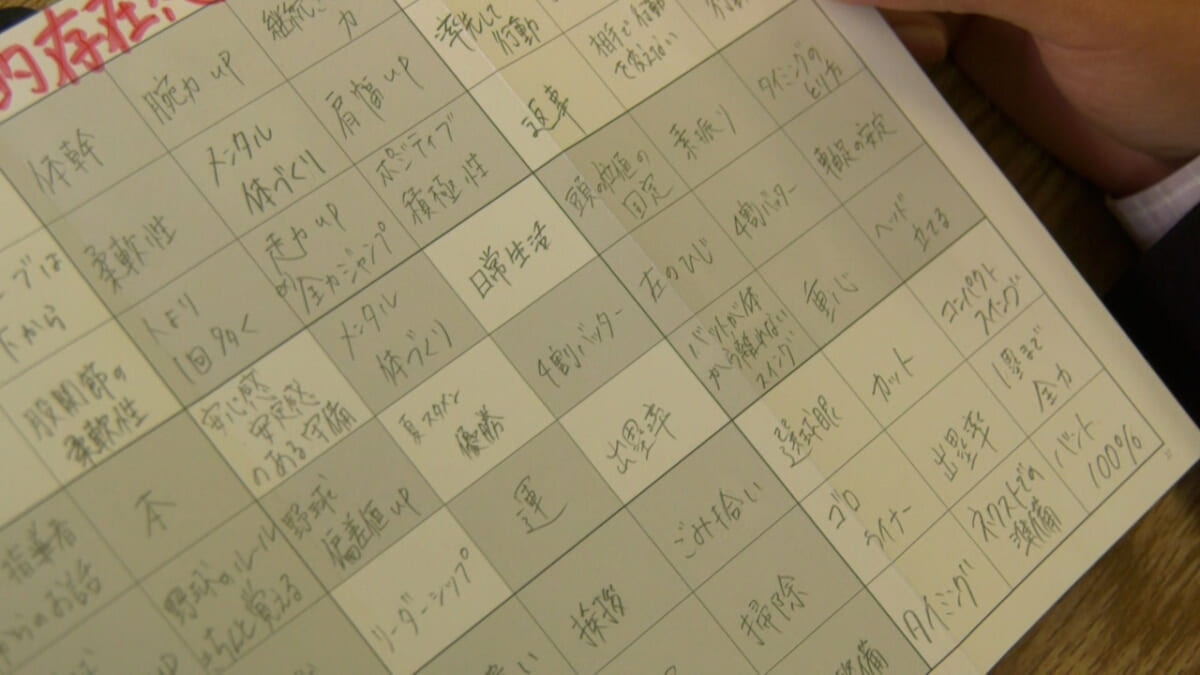 的存在
体幹
腕力UP
力
柔軟性
メンタル
体づくり
肩幅UP
人より
1回多く
走力UP
全力ジャンプ
ポジティブ
積極性
率先して
行動
相手で行動
で変えない
行動
返事
頭の位置の
固定
素振り
タイミングの
とり方
左のひじ
4割バッター
軸足の安定
バットが体
から離れない
スイング
重心
ヘッド
立てる
ーブは
下から
股関節の
柔軟性
メンタル
体づくり
日常生活
4割バッター
安心感
安定感
のある守備
夏スタメン
優勝
出塁率
野球
偏差値UP
リーダーシップ
運
選球眼
カット
コンパクト
スイング
ゴロ
ライナー
出塁率
1塁まで
全力
タイミング
ネクストでの
準備
バント
100%
本
指導者
からのお話
野球のルール
ちゃんと覚える
ごみ拾い
挨拶
掃除